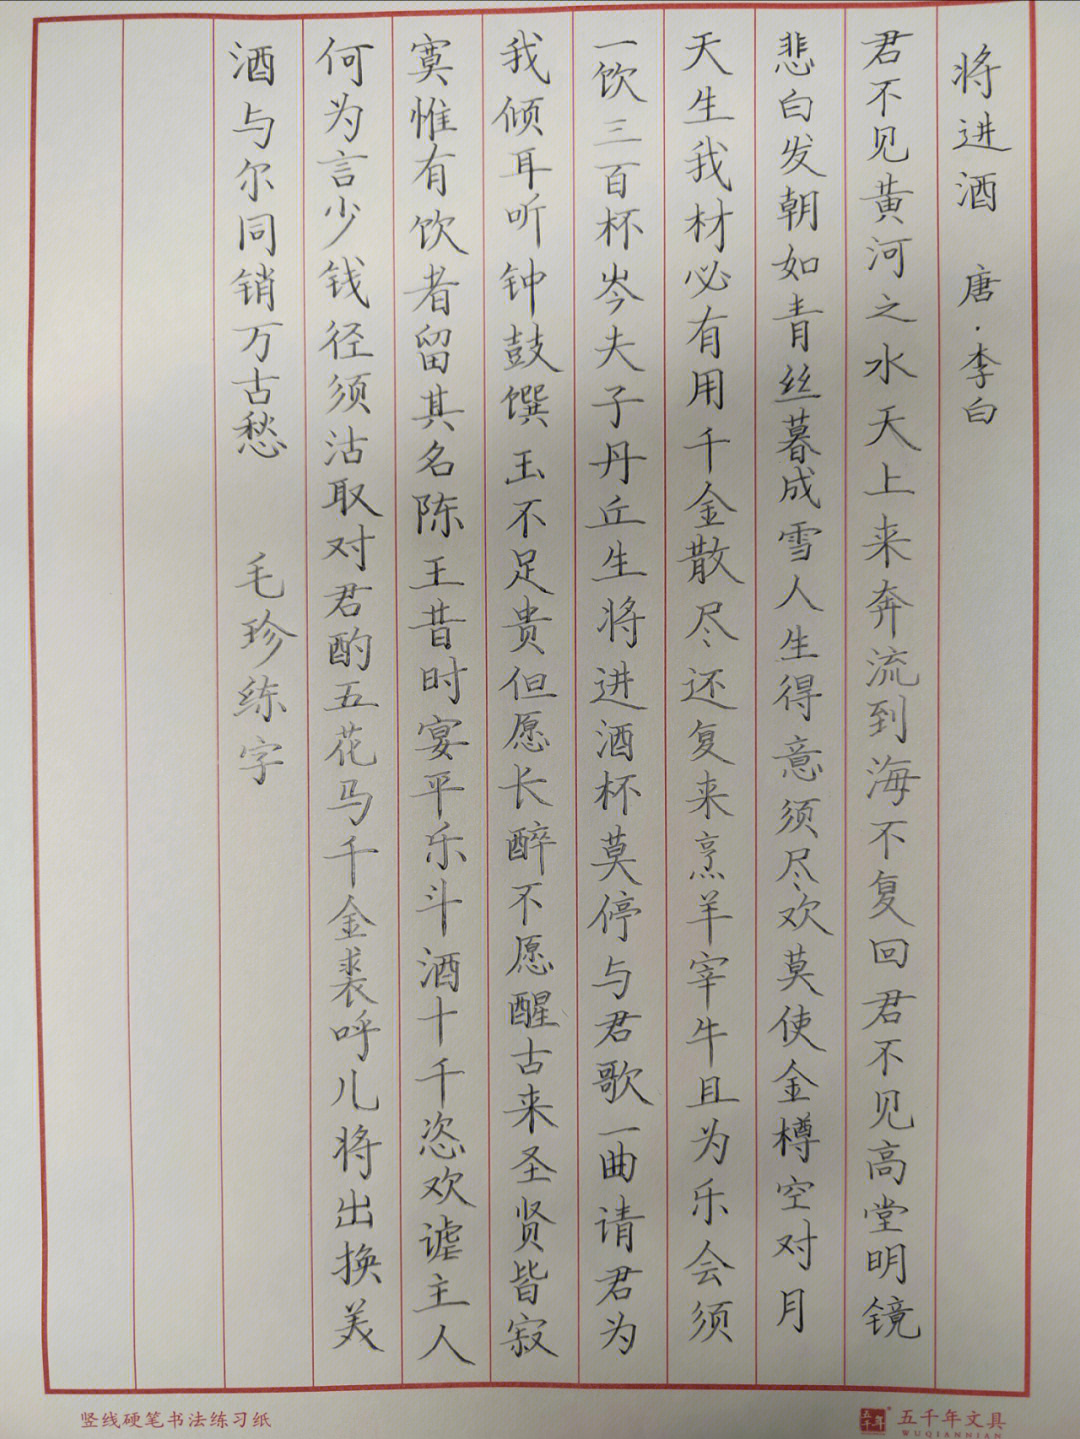 将进酒 唐·李白
君不见黄河之水天上来奔流到海不复回君不见高堂明镜
悲白发朝如青丝暮成雪人生得意须尽欢莫使金樽空对月
天生我材必有用千金散尽还复来烹羊宰牛且为乐会须
一饮三百杯岑夫子丹丘生将进酒杯莫停与君歌一曲请君为
我倾耳听钟鼓馔玉不足贵但愿长醉不愿醒古来圣贤皆寂
寞惟有饮者留其名陈王昔时宴平乐斗酒十千恣欢谑主人
何为言少钱径须沽取对君酌五花马千金裘呼儿将出换美
酒与尔同销万古愁 毛珍练字
竖线硬笔书法练习纸
五千年 五千年文具
WUQIANNIAN